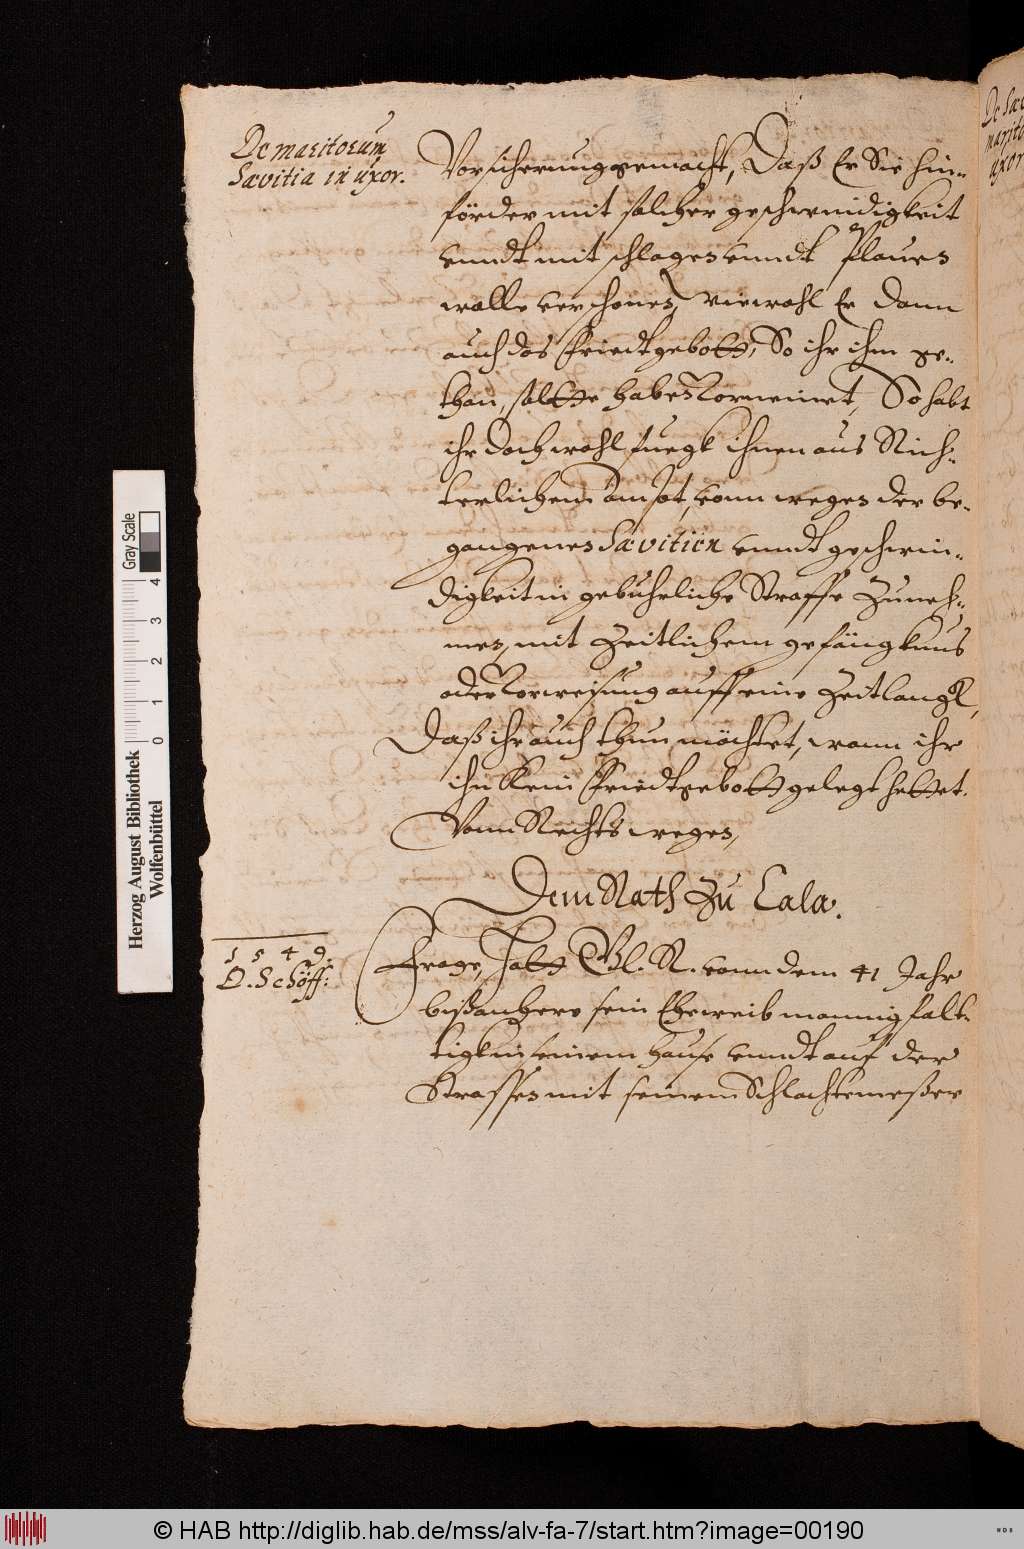 De maritorum
Sævitia in uxor.
Vorsicherung gemacht, Daß Er Sie hin-
förder mit solcher geschwindigkeit
unndt mit schlagen unndt
wolle verschonen, wiewohl Er dann
auch das Friedtgebott, So ihr ihm ge-
than, soltte haben Vorneinet, So habt
ihr doch wohl fuegk ihnen aus Rich-
terlichem ambt, vonn wegen der be-
gangenen Sævitien unndt geschwin-
digkeit in gebuhrliche Straffe Zuneh-
men, mit Zeitlichem gefängknus
oder Vorweisung auff eine Zeitlangk,
Daß ihr auch thun möchtet, wann ihr
ihn Kein Friedtgebott gelegt hettet.
Vonn Rechts wegen,
Dem Rath Zu Cala.
1549.
D. Schöff:
Frage, Hatt Bl. N. vonn dem 41 Jahr
bißanhero sein Eheweib mannigfalt-
tigk in seinem Hause unndt auf der
Strassen mit seinem Schlachtmeßer
De Sæ
marito
uxor
Herzog August Bibliothek
Wolfenbüttel
0 1 2 3 4
Gray Scale
© HAB http://diglib.hab.de/mss/alv-fa-7/start.htm?image=00190